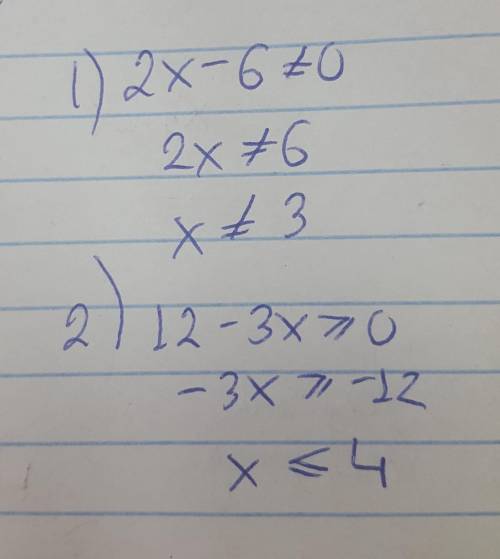 1) 2x-6≠0
2x≠6
x≠3
2) 12-3x⩾0
-3x⩾-12
x⩽4